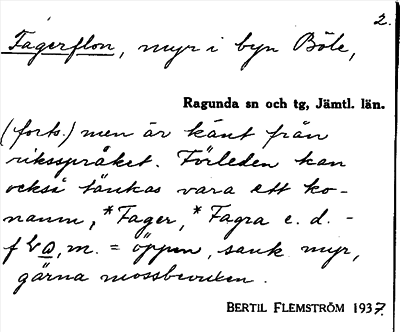 2.
Fagerflon, myr i byn Böle,
Ragunda sn och tg, Jämtl. län.
(forts.) men är känt från
riksspråket. Förleden kan
också tänkas vara ett ko-
namn, *Fager, *Fagra e. d. -
m. = öppen, sank myr,
gärna mossbevuxen.
BERTIL FLEMSTRÖM 1937.